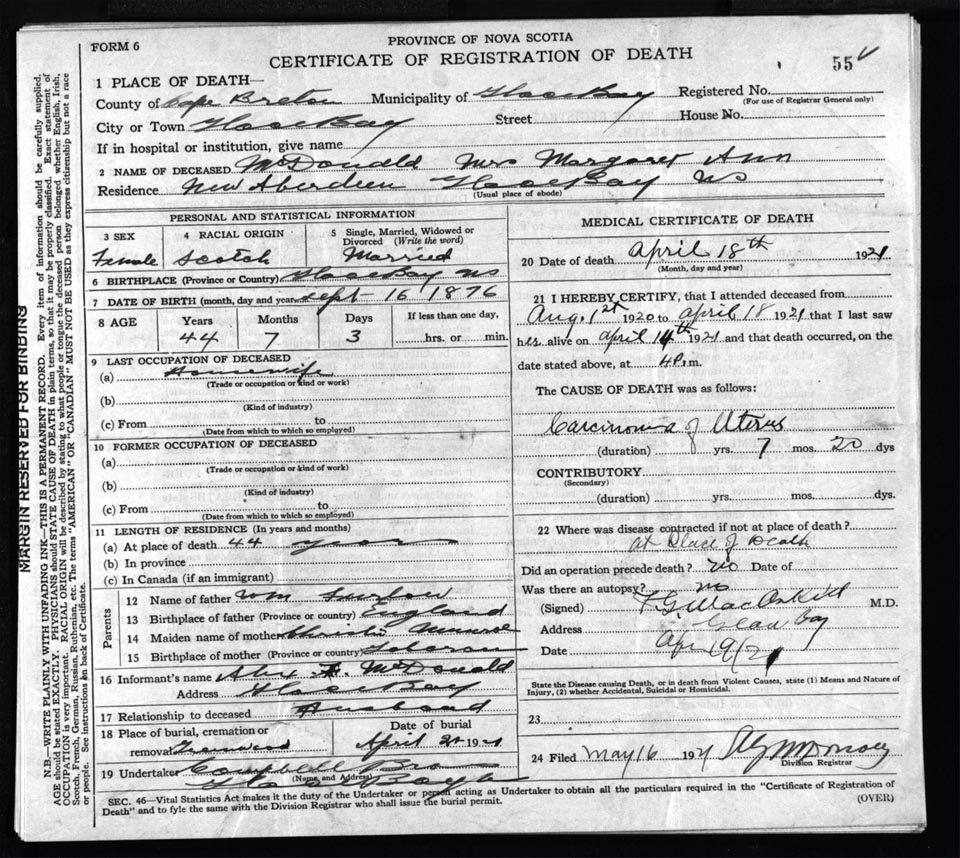 FORM 6
PROVINCE OF NOVA SCOTIA
CERTIFICATE OF REGISTRATION OF DEATH
55
1 PLACE OF DEATH—
County of Cape Breton Municipality of Glace Bay Registered No.
(For use of Registrar General only)
City or Town Glace Bay Street House No.
If in hospital or institution, give name
2 NAME OF DECEASED McDonald Mrs Margaret Ann
Residence New Aberdeen Glace Bay NS
(Usual place of abode)
PERSONAL AND STATISTICAL INFORMATION
3 SEX 4 RACIAL ORIGIN 5 Single, Married, Widowed or Divorced (Write the word)
Female Scotch Married
6 BIRTHPLACE (Province or Country) Glace Bay NS
7 DATE OF BIRTH (month, day and year) Sept 16 1876
8 AGE Years Months Days If less than one day,
44 7 3 hrs. or min.
9 LAST OCCUPATION OF DECEASED
(a) Housewife
(Trade or occupation or kind or work)
(b)
(Kind of industry)
(c) From to
(Date from which to which so employed)
10 FORMER OCCUPATION OF DECEASED
(a)
(Trade or occupation or kind of work)
(b)
(Kind of industry)
(c) From to
(Date from which to which so employed)
11 LENGTH OF RESIDENCE (In years and months)
(a) At place of death 44 years
(b) In province
(c) In Canada (if an immigrant)
Parents
12 Name of father Wm
13 Birthplace of father (Province or country) England
14 Maiden name of mother Christie Munroe
15 Birthplace of mother (Province or country)
16 Informant's name Alex A. McDonald
Address Glace Bay
17 Relationship to deceased Husband
18 Place of burial, cremation or removal Greenwood Date of burial April 1921
19 Undertaker Campbell Bros
(Name and Address)
Glace Bay
MEDICAL CERTIFICATE OF DEATH
20 Date of death April 18th 1921
(Month, day and year)
21 I HEREBY CERTIFY, that I attended deceased from
Aug. 1st 1920 to April 18 1921 that I last saw
her alive on April 14th 1921 and that death occurred, on the
date stated above, at 4 P. m.
The CAUSE OF DEATH was as follows:
Carcinoma of Uterus
(duration) yrs. 7 mos. 20 dys
CONTRIBUTORY
(Secondary)
(duration) yrs. mos. dys.
22 Where was disease contracted if not at place of death?
At Place of Death
Did an operation precede death? No Date of
Was there an autopsy? no
(Signed) M.D.
Address Glace Bay
Date Apr 19/21
State the Disease causing Death, or in death from Violent Causes, state (1) Means and Nature of
Injury, (2) whether Accidental, Suicidal or Homicidal.
23
24 Filed May 16 1921
Division Registrar
SEC. 46—Vital Statistics Act makes it the duty of the Undertaker or person acting as Undertaker to obtain all the particulars required in the "Certificate of Registration of
Death" and to fyle the same with the Division Registrar who shall issue the burial permit.
(OVER)
MARGIN RESERVED FOR BINDING
N.B.—WRITE PLAINLY WITH UNFADING INK—THIS IS A PERMANENT RECORD. Every item of information should be carefully supplied.
AGE should be stated EXACTLY. PHYSICIANS should STATE CAUSE OF DEATH in plain terms, so that it may be properly classified. Exact statement of
OCCUPATION is very important. RACIAL ORIGIN will be described by stating to what people or tongue the deceased person belonged whether English, Irish,
Scotch, French, German, Russian, Ruthenian, etc. The terms "AMERICAN" OR "CANADIAN" MUST NOT BE USED as they express citizenship but not a race
or people. See instructions on back of Certificate.